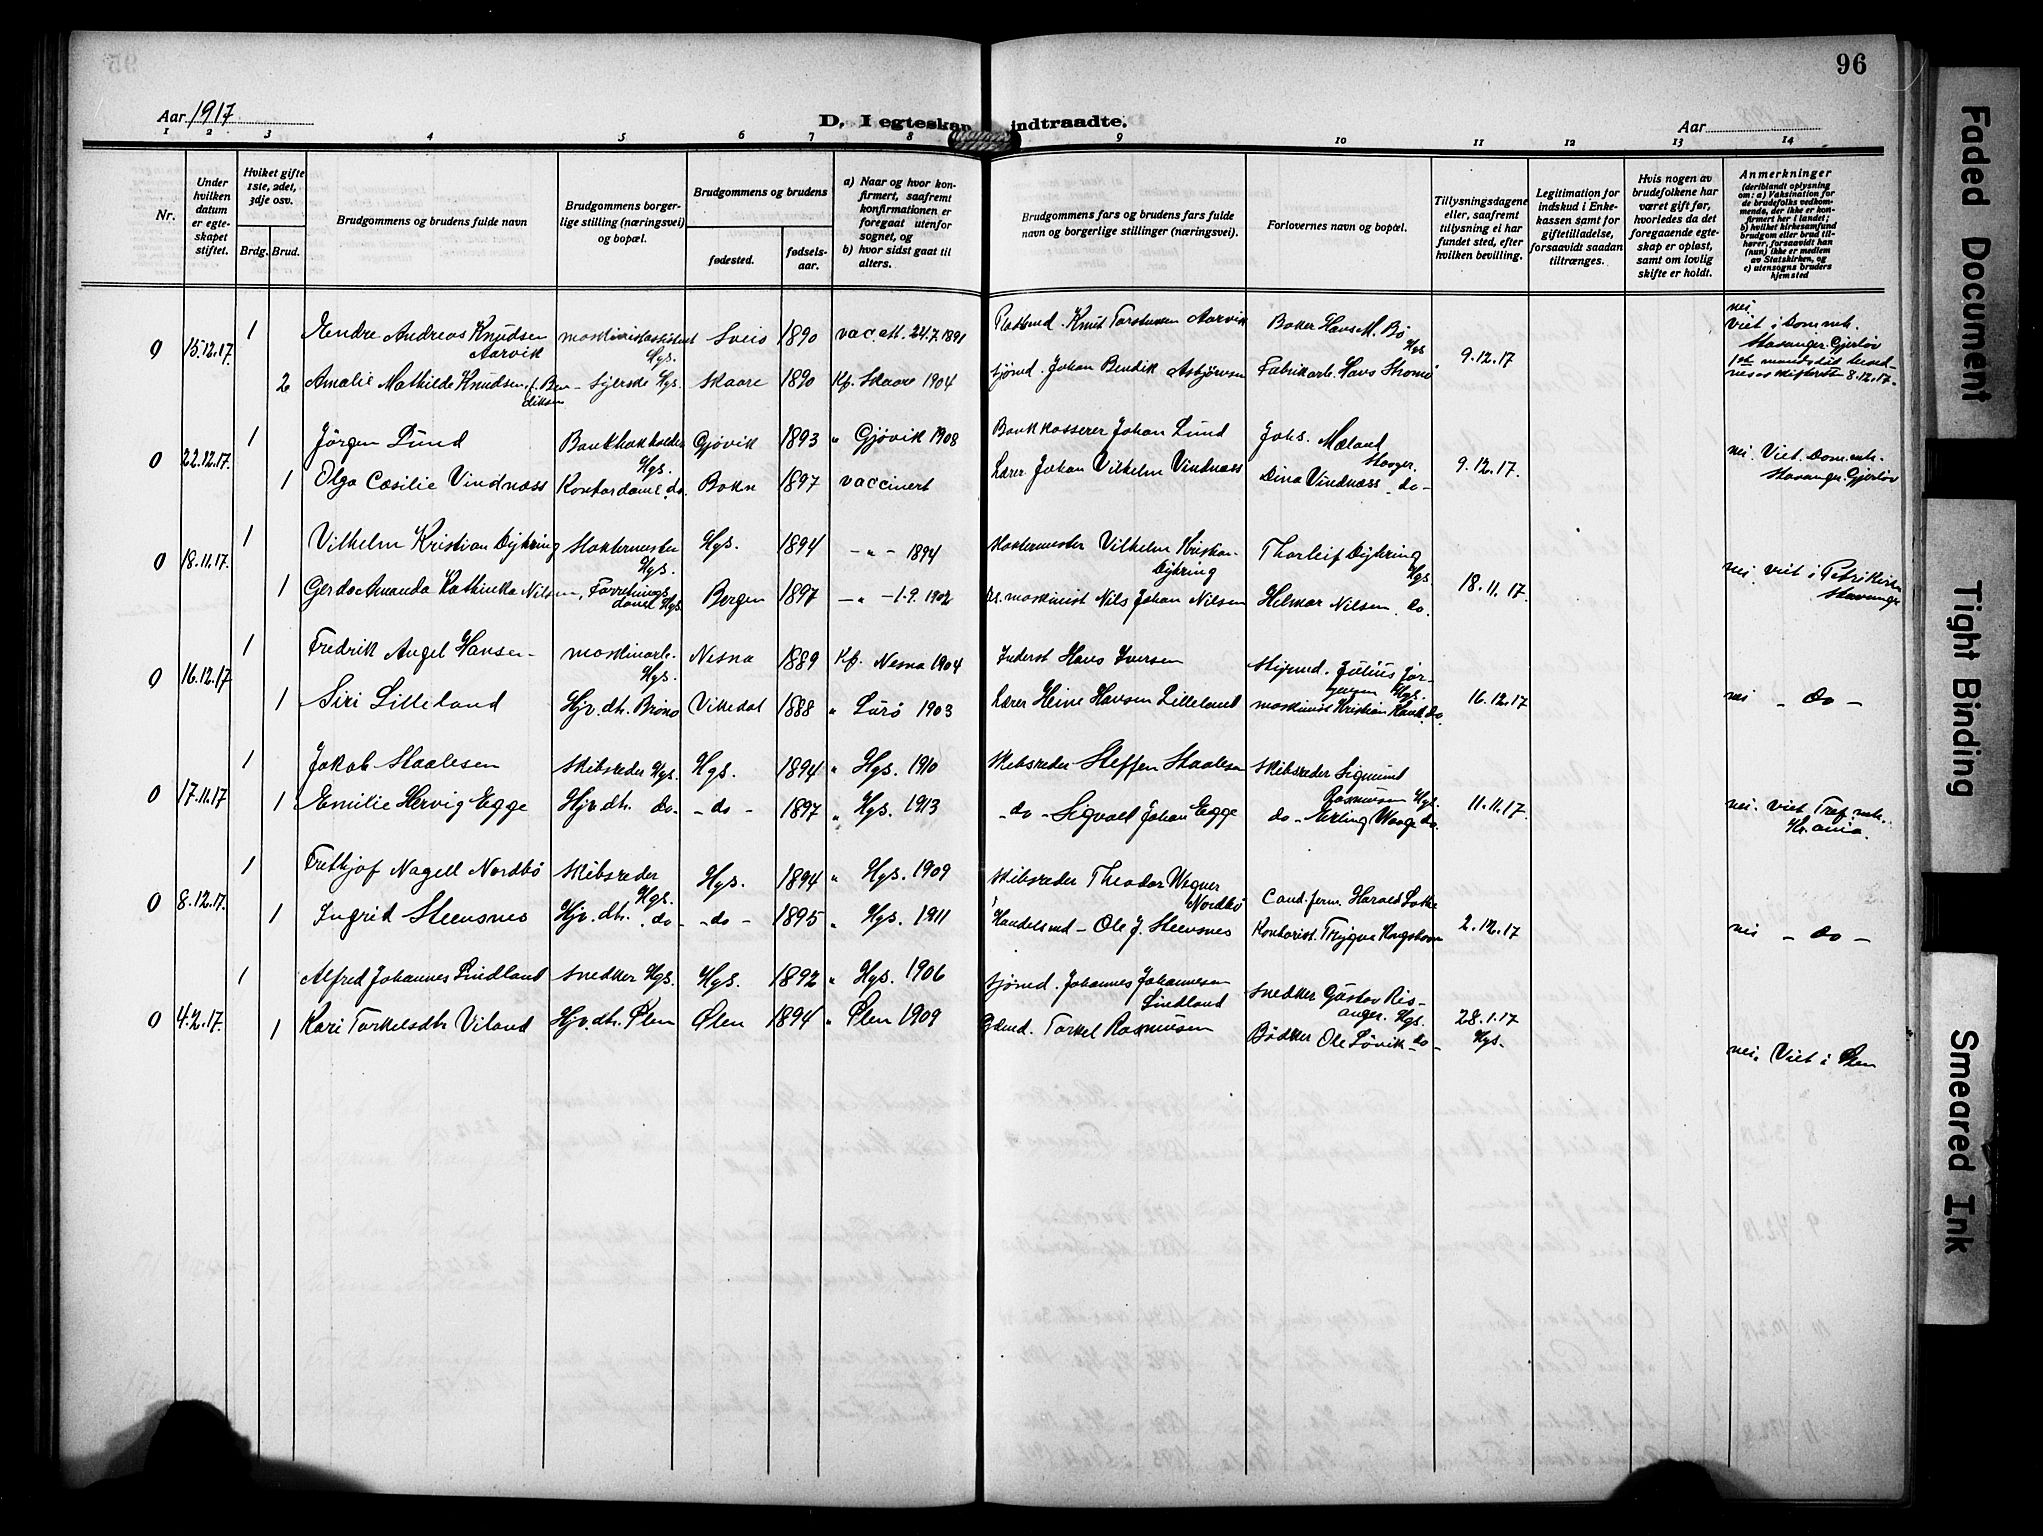 96
Aar 1917
D. I egteskap indtraadte.
Aar
1 2 3 4 5 6 7 8 9 10 11 12 13 14
Nr.
Under hvilken datum er egteskapet stiftet.
Hviket gifte 1ste, 2det, 3dje osv.
Brdg. Brud.
Brudgommens og brudens fulde navn
Brudgommens borgerlige stilling (næringsvei) og bopæl.
Brudgommens og brudens
fødested.
fødselsaar.
a) Naar og hvor konfirmert, saafremt konfirmationen er foregaat utenfor sognet, og
b) hvor sidst gaat til alters.
Brudgommens fars og brudens fars fulde navn og borgerlige stillinger (næringsvei).
Forlovernes navn og bopæl.
Tillysningsdagene eller, saafremt tillysning ei har fundet sted, efter hvilken bevilling.
Legitimation for indskud i Enkekassen samt for giftetilladelse, forsaavidt saadan tiltrænges.
Hvis nogen av brudefolkene har været gift før, hvorledes da det foregaaende egteskap er opløst, samt om lovlig skifte er holdt.
Anmerkninger
(deriblandt oplysning om: a) Vaksination for de brudefolks vedkommende, der ikke er konfirmert her i landet; b) hvilket kirkesamfund brudgom eller brud tilhører, forsaavidt han (hun) ikke er medlem av Statskirken, og c) utensogns bruders hjemsted
0 15.12.17 1 Endre Andreas Knudsen Aarvik maskinistassistent Hgs. Sveio 1890 vac. att. 24.7.1891 Knut Torstensen Aarvik Baker Hans M. Bö Hgs 9.12.17 nei. Viet i Dom.mk. Stavanger. Gjerløv
2 Amalie Mathilde Knudsen, f. Bendiksen Syerske Hgs. Skaare 1890 Kf. Skaare 1904 sjømd. Johan Bendik Asbjørnsen Fabrikarb. Hans Stromö 8.12.17.
0 22.12.17. 1 Jörgen Lund Bankbokholder Hgs. Gjøvik 1893 " Gjøvik 1908 Bankkasserer Johan Lund Johs. Mæland Stavger. 9.12.17. nei. Viet. Dom.mk. Stavanger. Gjerløv
1 Olga Cæsilie Vindnæss Kontordame. do. Bokn 1897 vaccinert Lærer. Johan Vilhelm Vindnæss Dina Vindnæss - do -
0 18.11.17. 1 Vilhelm Kristian Dyhring Slaktermester Hgs. Hgs. 1894 - " - 1894 Slaktermester Vilhelm Kristian Dyhring Thorleif Dyhring Hgs 18.11.17. nei. viet i Petrikirken Stavanger
1 Gerda Amanda Kathinka Nilsen, Forretningsdame Hgs Bergen 1897 - " - 1.9.1902 maskinist Nils Johan Nilsen Helmar Nilsen. do.
0 16.12.17 1 Fredrik Angel Hansen - maskinarb. Hgs. Nesna 1889 Kf. Nesna 1904 Inderst Hans Iversen Julius Jørgensen Hgs. 16.12.17 nei - do -
1 Siri Lilleland Hjv. dt. Vikedal 1888 " Lurö 1903 Lærer Heine Hansen Lilleland maskinist Kristian do.
0 17.11.17 1 Jakob Staalesen Skibsreder Hgs. Hgs. 1894 " Hgs. 1910 Skibsreder Steffen Staalesen Skibsreder Sigmund Rasmusen Hgs. 11.11.17. nei. viet Tref.mk. Kr.ania.
1 Emilie Hervig Egge Hjv. dt. do - - do - 1897 " Hgs. 1913 - do - Sigvald Johan Egge do - Erling Waage do.
0 8.12.17. 1 Frethjof Nagell Nordbö Skibsreder Hgs. Hgs. 1894 " Hgs. 1909 Skibsreder Theodor Wegner Nordbö Cand. ferm. Harald Lothe 2.12.17 nei - do -
1 Ingrid Steensnes Hjv. dt. do - - do - 1895 " Hgs. 1911 Handelsmd - Ole J. Steensnes Kontorist. Trygve
0 4.2.17. 1 Alfred Johannes Lindland snedker Hgs. Hgs. 1892 " Hgs. 1906 sjømd. Johannes Johannesen Lindland snedker Gustav Risanger. Hgs. 28.1.17 Hgs. nei. Viet i Ølen
1 Kari Torkelsdtr. Viland Hjv. dt. Ølen Ølen 1894 " Ølen 1909 Torkel Rasmusen Bödker Ole Lövik - do -
Faded Document
Tight Binding
Smeared Ink